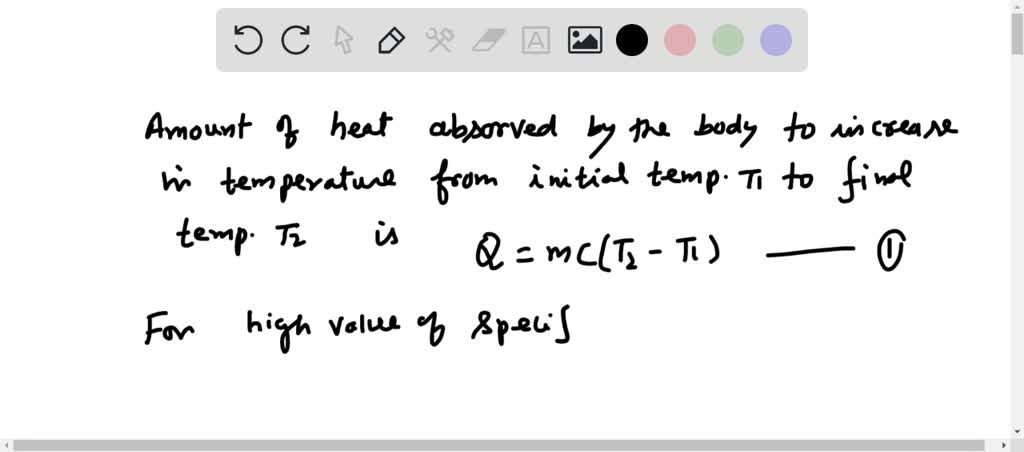 A
Amount of heat absorved by the body to increase
in temperature from initial temp. T1 to final
temp. T2 is Q = mc(T2 - T1) —— ①
For high value of specif